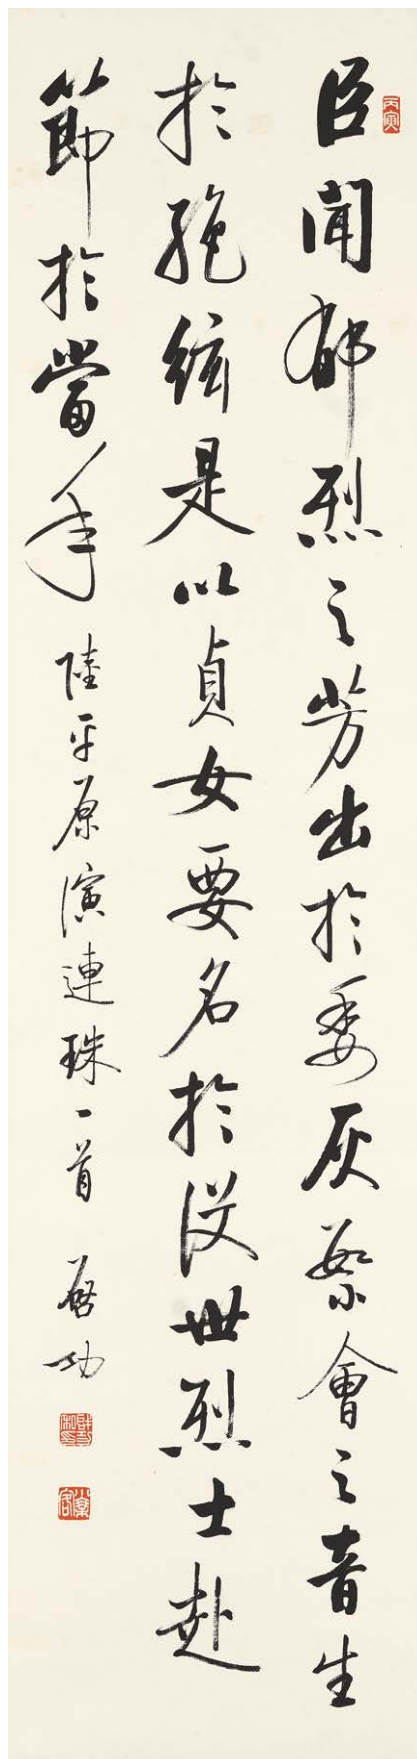 丙寅
臣聞郁烈之芳出於委灰繁會之音生
於絕絃是以貞女要名於沒世烈士赴
節於當年 陸平原演連珠一首 啟功